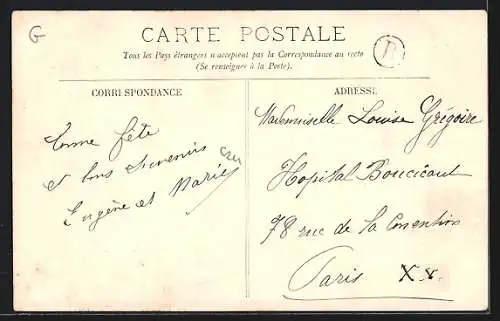 G
CARTE POSTALE
Tous les Pays étrangers n'acceptent pas la Correspondance au recto
(Se renseigner à la Poste).
R
CORRESPONDANCE
Bonne fête
et bons souvenirs
Eugène et Marie
ADRESSE
Mademoiselle Louise Grégoire
Hopital Boucicaut
78 rue de la Convention
Paris XV